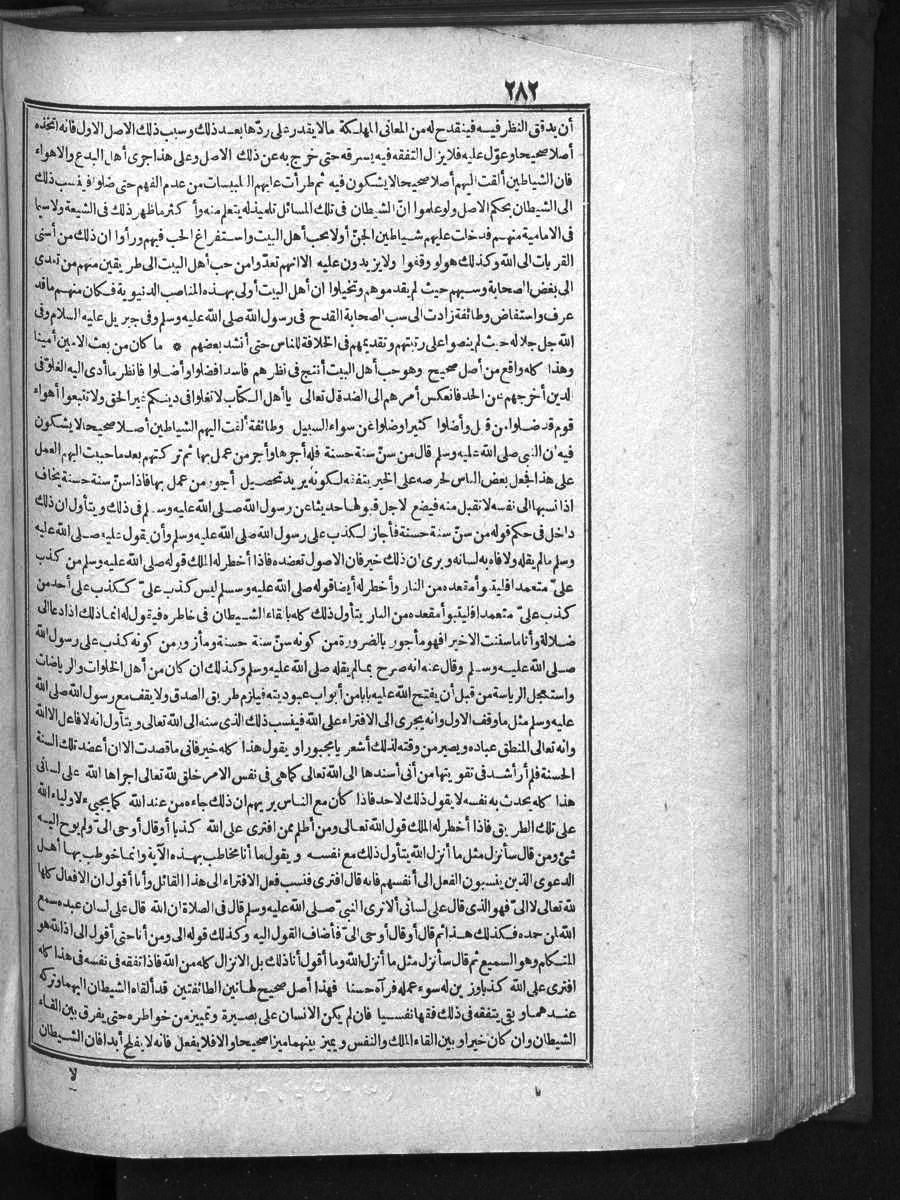 ٢٨٢
أن يدقق النظر فيه فينقدح له من المعانى المهلكة مالا يقدر على ردّها بعد ذلك وسبب ذلك الاصل الاول فانه اتخذه
أصلا صحيحا وعوّل عليه فلايزال التفقه فيه يسرقه حتى خرج به عن ذلك الاصل وعلى هذا جرى أهل البدع والاهواء
فان الشياطين ألقت اليهم أصلا صحيحا لايشكون فيه ثم طرأت عليهم التلبيسات من عدم الفهم حتى ضلوا فينسب ذلك
الى الشيطان بحكم الاصل ولو علموا انّ الشيطان فى تلك المسائل تلميذ له يتعلم منه وأكثر ماظهر ذلك فى الشيعة ولاسيما
فى الامامية منهم فدخلت عليهم شياطين الجنّ أولا بحب أهل البيت واستفراغ الحب فيهم ورأوا ان ذلك من أسنى
القربات الى الله وكذلك هو لو وقفوا ولايزيدون عليه الا انهم تعدّوا من حب أهل البيت الى طريقين منهم من تعدى
الى بغض الصحابة وسبهم حيث لم يقدموهم وتخيلوا ان أهل البيت أولى بهذه المناصب الدنيوية فكان منهم ماقد
عرف واستفاض وطائفة زادت الى سب الصحابة القدح فى رسول الله صلى الله عليه وسلم وفى جبريل عليه السلام وفى
الله جل جلاله حيث لم ينصوا على رتبتهم وتقديمهم فى الخلافة للناس حتى أنشد بعضهم * ما كان من بعث الامين أمينا
وهذا كله واقع من أصل صحيح وهو حب أهل البيت أنتج فى نظرهم فاسدا فضلوا وأضلوا فانظر ما أدى اليه الغلو فى
الدين أخرجهم عن الحد فانعكس أمرهم الى الضد قال تعالى يا أهل الكتاب لاتغلوا فى دينكم غير الحق ولا تتبعوا أهواء
قوم قد ضلوا من قبل وأضلوا كثيرا وضلوا عن سواء السبيل وطائفة ألقت اليهم الشياطين أصلا صحيحا لايشكون
فيه ان النبى صلى الله عليه وسلم قال من سنّ سنة حسنة فله أجرها وأجر من عمل بها ثم تركتهم بعد ما حببت اليهم العمل
على هذا فجعل بعض الناس لحرصه على الخير يتفقه لكونه يريد تحصيل أجور من عمل بها فاذا سنّ سنة حسنة يخاف
اذا نسبها الى نفسه لا تقبل منه فيضع لاجل قبولها حديثا عن رسول الله صلى الله عليه وسلم فى ذلك ويتأول ان ذلك
داخل فى حكم قوله من سنّ سنة حسنة فأجاز الكذب على رسول الله صلى الله عليه وسلم وأن يقول عليه صلى الله عليه
وسلم مالم يقله ولافاه به لسانه ويرى ان ذلك خير فان الاصول تعضده فاذا أخطر له الملك قوله صلى الله عليه وسلم من كذب
علىّ متعمدا فليتبوأ مقعده من النار وأخطر له أيضا قوله صلى الله عليه وسلم ليس كذب علىّ ككذب على أحد من
كذب علىّ متعمدا فليتبوأ مقعده من النار يتأول ذلك كله بالقاء الشيطان فى خاطره فيقول له انما ذلك اذا دعا الى
ضلالة وأنا ماسننت الاخير افهو مأجور بالضرورة من كونه سنّ سنة حسنة ومأزور من كونه كذب على رسول الله
صلى الله عليه وسلم وقال عنه انه صرح بمالم يقله صلى الله عليه وسلم وكذلك ان كان من أهل الخلوات والرياضات
واستعجل الرياسة من قبل أن يفتح الله عليه بابا من أبواب عبوديته فيلزم طريق الصدق ولايقف مع رسول الله صلى الله
عليه وسلم مثل ماوقف الاول وانه يجرى الى الافتراء على الله فينسب ذلك الذى سنه الى الله تعالى ويتأول انه لافاعل الا الله
وانه تعالى المنطق عباده ويصير من وقته لذلك أشعريا مجبورا ويقول هذا كله خير فانى ماقصدت الا ان أعضد تلك السنة
الحسنة فلم أر أشد فى تقويتها من أنى أسندها الى الله تعالى كماهى فى نفس الامر خلق لله تعالى اجراها الله على لسانى
هذا كله يحدث به نفسه لايقول ذلك لاحد فاذا كان مع الناس يريهم ان ذلك جاءه من عند الله كمايجىء لاولياء الله
على تلك الطريق فاذا أخطر له الملك قول الله تعالى ومن أظلم ممن افترى على الله كذبا أو قال أوحى الىّ ولم يوح اليه
شئ ومن قال سأنزل مثل ما أنزل الله يتأول ذلك مع نفسه ويقول ما أنا مخاطب بهذه الآية وانما خوطب بها أهل
الدعوى الذين ينسبون الفعل الى أنفسهم فانه قال افترى فنسب فعل الافتراء الى هذا القائل وأنا أقول ان الافعال كلها
لله تعالى لا الىّ فهو الذى قال على لسانى ألا ترى النبىّ صلى الله عليه وسلم قال فى الصلاة ان الله قال على لسان عبده سمع
الله لمن حمده فكذلك هذا ثم قال أو قال أوحى الىّ فأضاف القول اليه وكذلك قوله الى ومن أنا حتى أقول الى اذ الله هو
المتكلم وهو السميع ثم قال سأنزل مثل ما أنزل الله وما أقول أنا ذلك بل الانزال كله من الله فاذا تفقه فى نفسه فى هذا كله
افترى على الله كذبا وزين له سوء عمله فرآه حسنا فهذا أصل صحيح لهاتين الطائفتين قد ألقاه الشيطان اليهما وتركه
عندهما وبقى يتفقه فى ذلك فقها نفسيا فان لم يكن الانسان على بصيرة وتمييز من خواطره حتى يفرق بين القاء
الشيطان وان كان خيرا وبين القاء الملك والنفس ويميز بينهما ميزا صحيحا والا فلا يفعل فانه لا يفلح أبدا فان الشيطان
لا